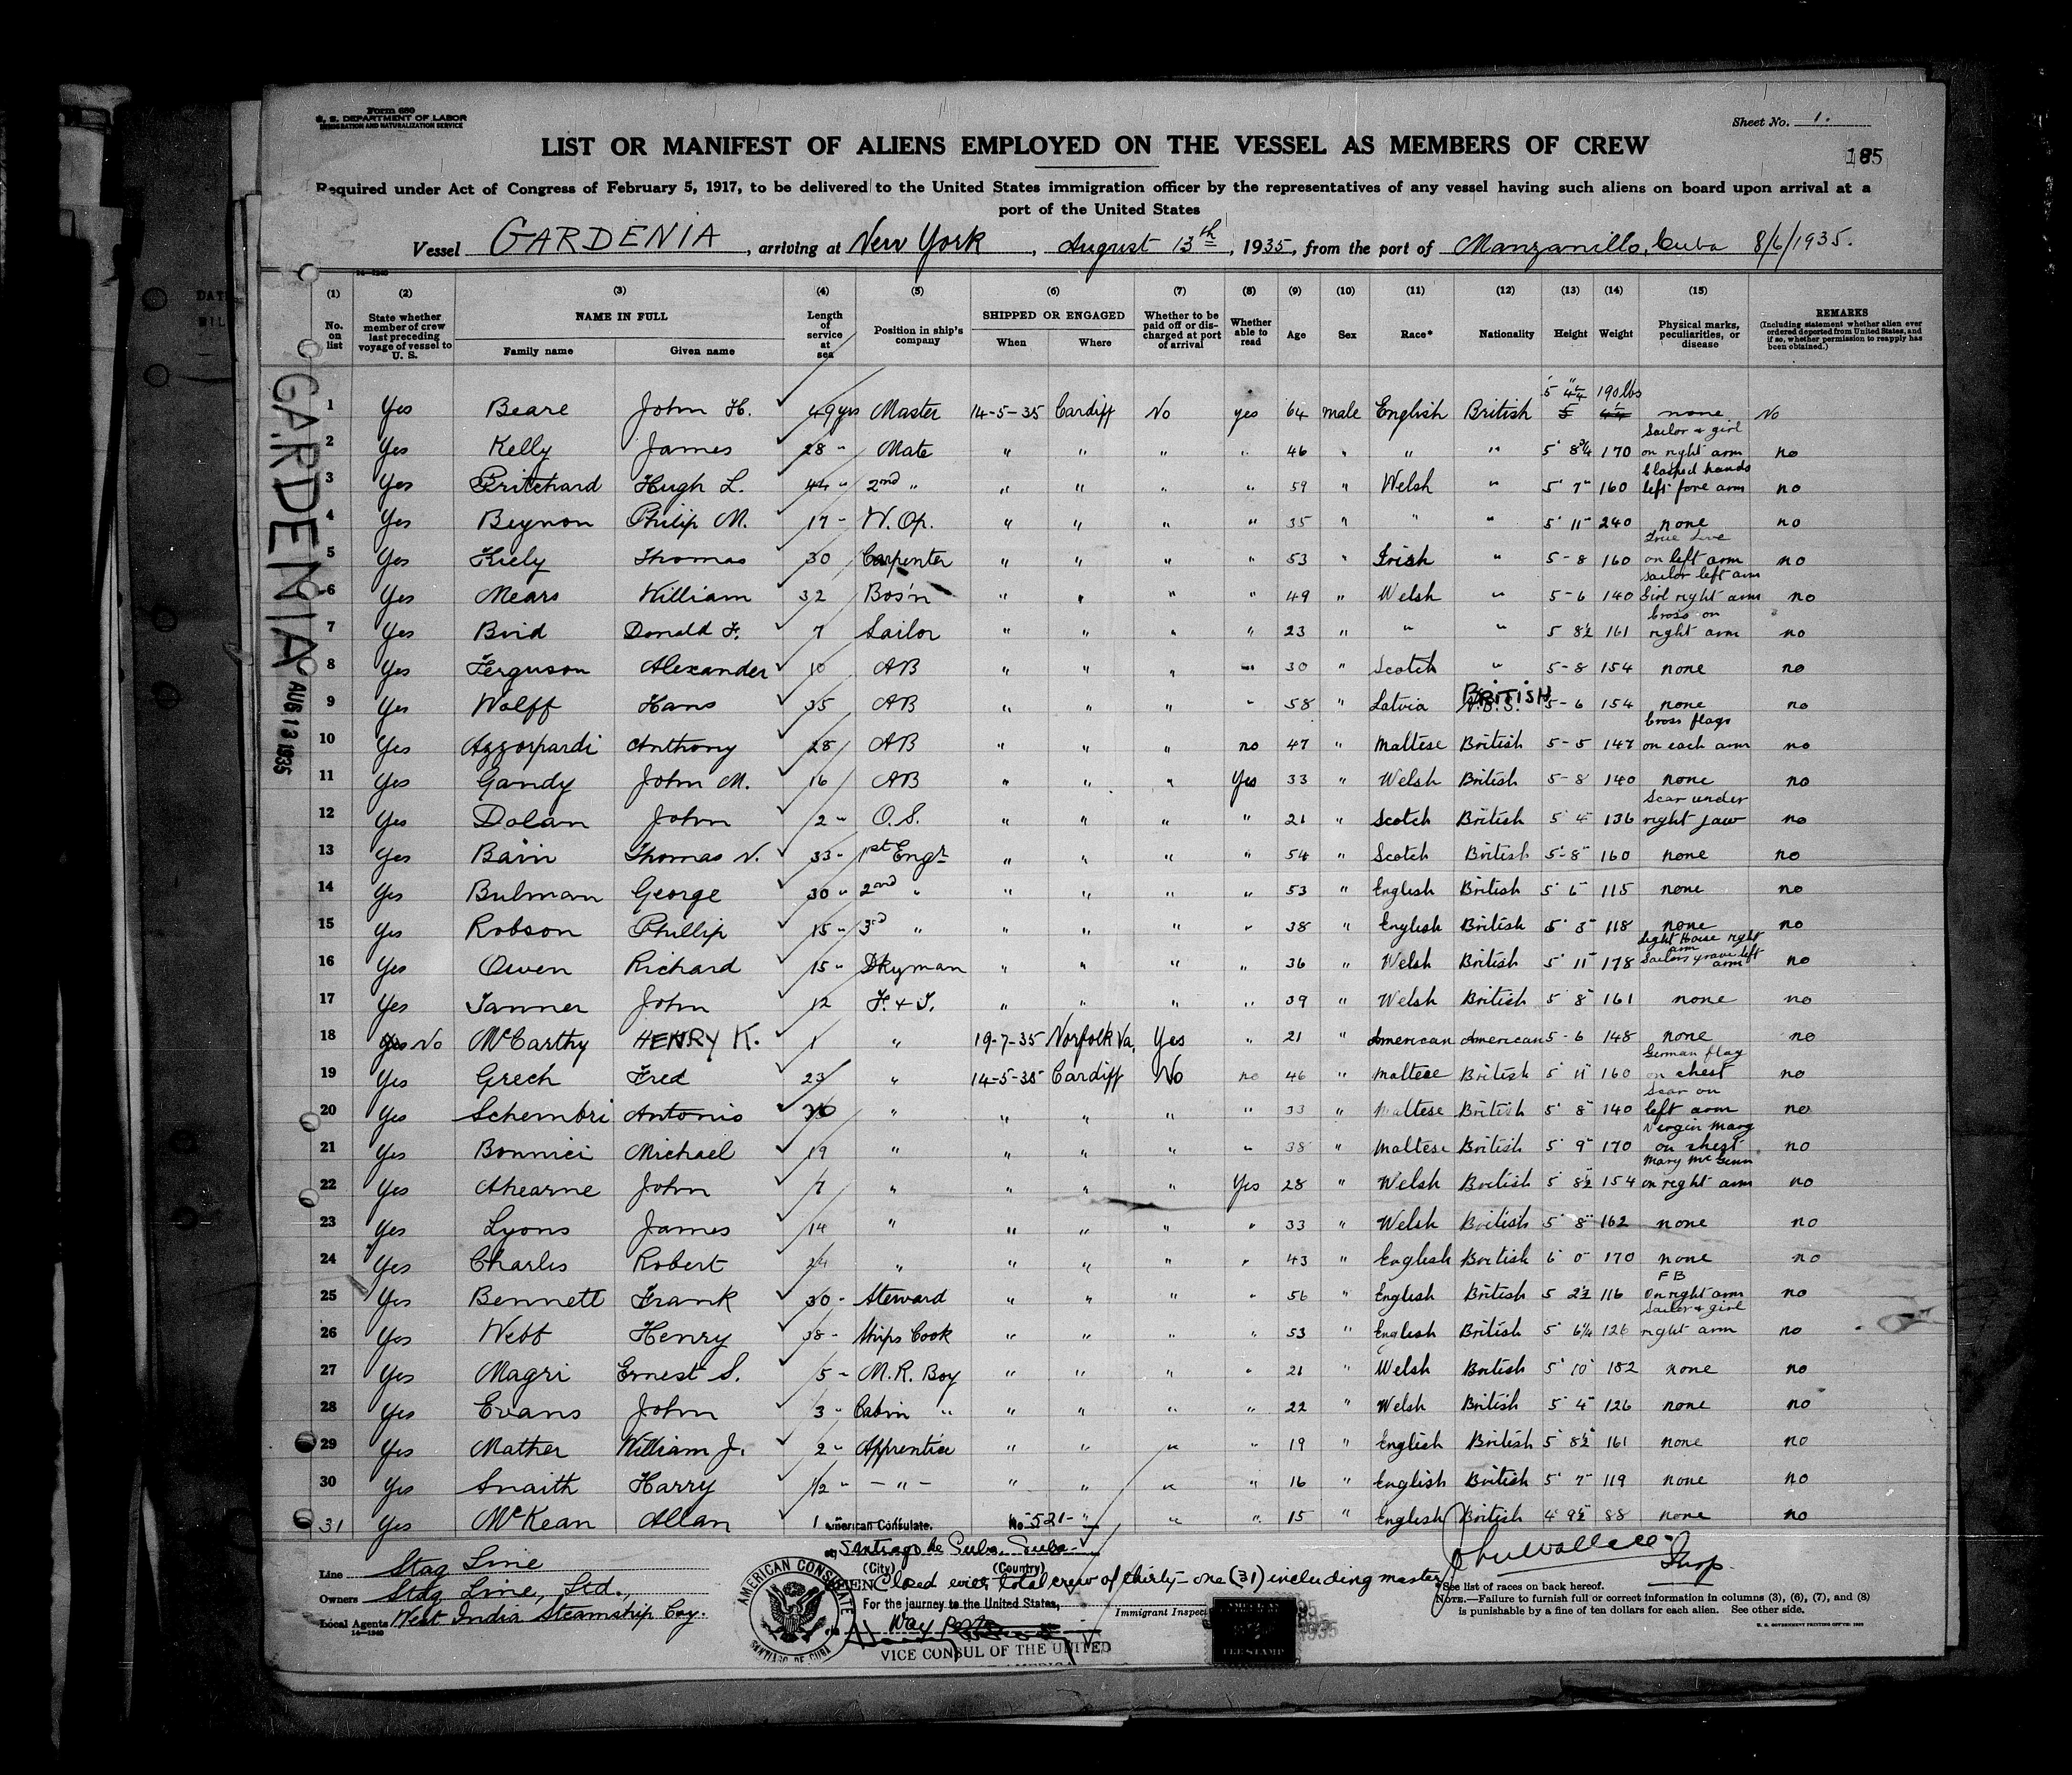 Form 680
U. S. DEPARTMENT OF LABOR
IMMIGRATION AND NATURALIZATION SERVICE
Sheet No. 1.
LIST OR MANIFEST OF ALIENS EMPLOYED ON THE VESSEL AS MEMBERS OF CREW
185
Required under Act of Congress of February 5, 1917, to be delivered to the United States immigration officer by the representatives of any vessel having such aliens on board upon arrival at a
port of the United States
Vessel GARDENIA, arriving at New York, August 13th, 1935, from the port of Manzanillo, Cuba 8/6/1935.
14—1240
(1) (2) (3) (4) (5) (6) (7) (8) (9) (10) (11) (12) (13) (14) (15)
No. on list State whether member of crew last preceding voyage of vessel to U. S. NAME IN FULL Family name Given name Length of service at sea Position in ship's company SHIPPED OR ENGAGED When Where Whether to be paid off or discharged at port of arrival Whether able to read Age Sex Race* Nationality Height Weight Physical marks, peculiarities, or disease REMARKS (Including statement whether alien ever ordered deported from United States, and if so, whether permission to reapply has been obtained.)
GARDENIA
AUG 13 1935
1 Yes Beare John H. 49 yrs Master 14-5-35 Cardiff No yes 64 male English British 5' 4½" 190 lbs none No
2 Yes Kelly James 28 " Mate " " " " 46 " " " 5' 8¾ 170 Sailor & girl on right arm no
3 Yes Pritchard Hugh L. 44 " 2nd " " " " " 59 " Welsh " 5' 7" 160 Clasped hands left fore arm no
4 Yes Beynon Philip M. 17 " W. Op. " " " " 35 " " " 5' 11" 240 none no
5 Yes Kiely Thomas 30 Carpenter " " " " 53 " Irish " 5-8 160 True Love on left arm no
6 Yes Mears William 32 Bos'n " " " " 49 " Welsh " 5-6 140 Sailor left arm Girl right arm no
7 Yes Bird Donald F. 7 Sailor " " " " 23 " " " 5 8½ 161 Cross on right arm no
8 Yes Ferguson Alexander 10 AB " " " " 30 " Scotch " 5-8 154 none no
9 Yes Wolff Hans 35 AB " " " " 58 " Latvia BRITISH 5-6 154 none no
10 Yes Azzorpardi Anthony 28 AB " " " no 47 " Maltese British 5-5 147 Cross flags on each arm no
11 Yes Gandy John M. 16 AB " " " Yes 33 " Welsh British 5-8 140 none no
12 Yes Dolan John 2 " O.S. " " " " 21 " Scotch British 5' 4" 136 Scar under right jaw no
13 Yes Bain Thomas N. 33 " 1st Engr " " " " 54 " Scotch British 5'-8" 160 none no
14 Yes Bulman George 30 " 2nd " " " " " 53 " English British 5' 6" 115 none no
15 Yes Robson Phillip 15 " 3rd " " " " " 38 " English British 5' 8" 118 none no
16 Yes Owen Richard 15 " Dkyman " " " " 36 " Welsh British 5' 11" 178 Light House right arm Sailors grave left arm no
17 Yes Tanner John 12 F. & T. " " " " 39 " Welsh British 5' 8" 161 none no
18 Yes No McCarthy HENRY K. 1 " 19-7-35 Norfolk Va. Yes " 21 " American American 5-6 148 none no
19 Yes Grech Fred 23 " 14-5-35 Cardiff No no 46 " Maltese British 5' 11" 160 German flag on chest no
20 Yes Schembri Antonio " " " " " 33 " Maltese British 5' 8" 140 Scar on left arm no
21 Yes Bonnici Michael 19 " " " " " 38 " Maltese British 5' 9" 170 Vergin Mary on chest no
22 Yes Ahearne John 7 " " " " Yes 28 " Welsh British 5' 8½ 154 Mary McGinn on right arm no
23 Yes Lyons James 14 " " " " " 33 " Welsh British 5' 8" 162 none no
24 Yes Charles Robert 24 " " " " " 43 " English British 6' 0" 170 none no
25 Yes Bennett Frank 30 " Steward " " " " 56 " English British 5 2½ 116 FB On right arm no
26 Yes Webb Henry 38 " Ships Cook " " " " 53 " English British 5' 6¼ 126 Sailor & girl right arm no
27 Yes Magri Ernest S. 5 " M.R. Boy " " " " 21 " Welsh British 5' 10" 182 none no
28 Yes Evans John 3 " Cabin " " " " " 22 " Welsh British 5' 4" 126 none no
29 Yes Mather William J. 2 " Apprentice " " " " 19 " English British 5' 8½ 161 none no
30 Yes Snaith Harry 1/2 " — " — " " " " 16 " English British 5' 7" 119 none no
31 Yes McKean Allan 1 " " " " " 15 " English British 4' 9½ 88 none no
American Consulate, No. 521-
at Santiago de Cuba, Cuba
(City) (Country)
Closed with total crew of thirty-one (31) including master
For the journey to the United States,
Way
VICE CONSUL OF THE UNITED
AMERICAN CONSULATE
SANTIAGO DE CUBA
Line Stag Line
Owners Stag Line, Ltd.,
Local Agents West India Steamship Coy.
14—1240
John Wallace
Insp.
Immigrant Inspec
AMERICAN
FEE STAMP
*See list of races on back hereof.
NOTE.—Failure to furnish full or correct information in columns (3), (6), (7), and (8)
is punishable by a fine of ten dollars for each alien. See other side.
U. S. GOVERNMENT PRINTING OFFICE